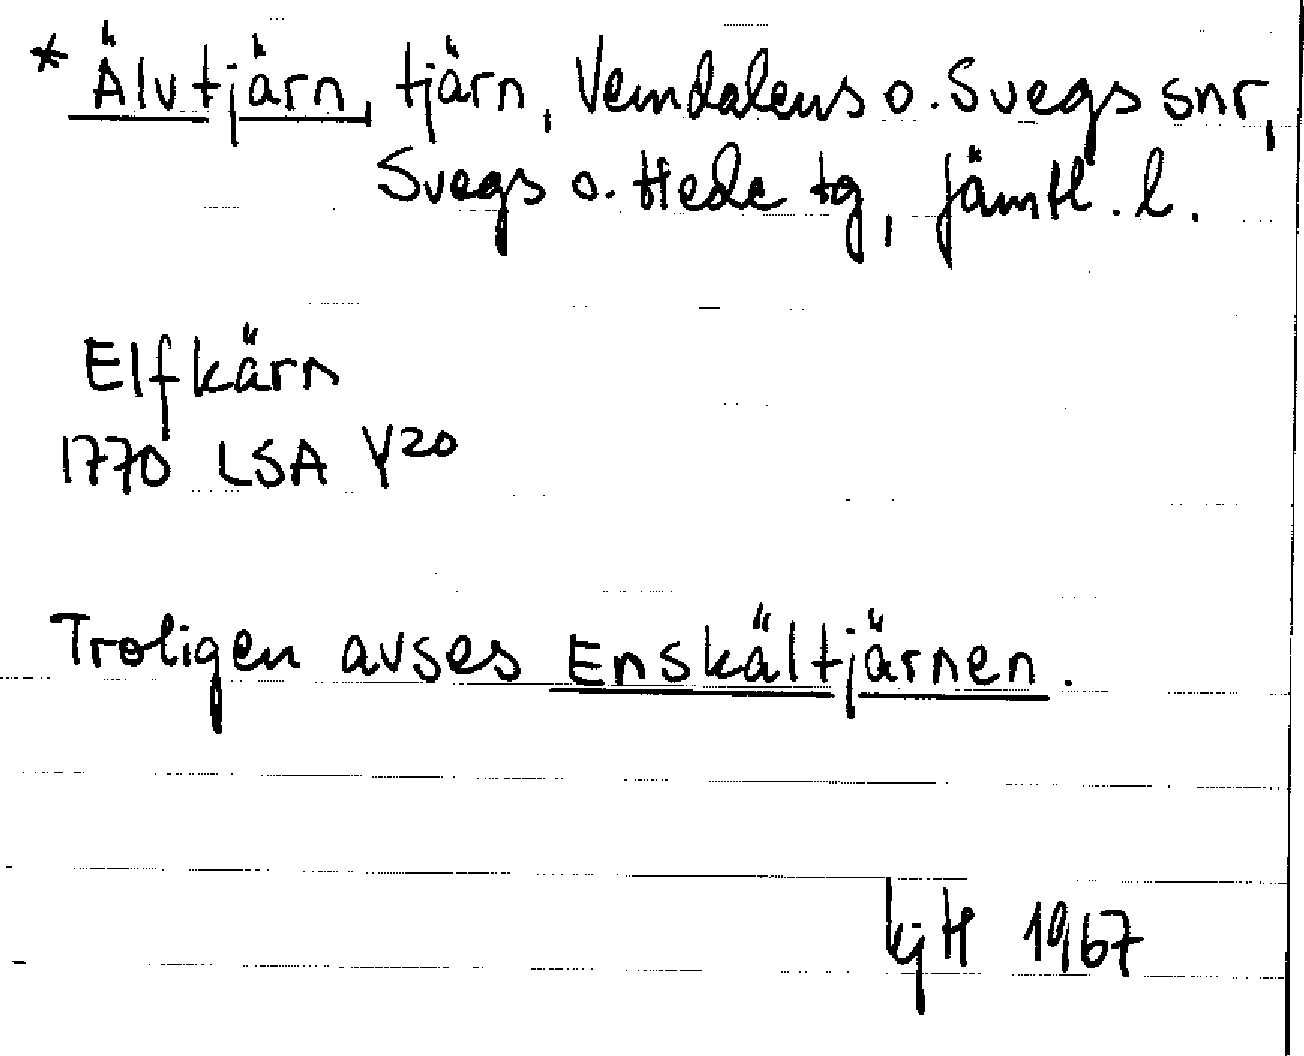 * Älvtjärn, tjärn, Vemdalens o. Svegs snr,
Svegs o. Hede tg, Jämtl. l.
Elfkärn
1770 LSA Y20
Troligen avses Enskältjärnen.
kjH 1967